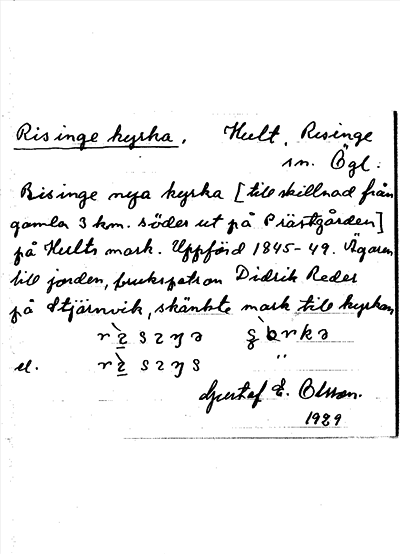 Risinge kyrka. Hult, Risinge
sn. Ögl.
Risinge nya kyrka [till skillnad från
gamla 3 km. söder ut på Prästgården]
på Hults mark. Uppförd 1845-49. Ägaren
till jorden, brukspatron Didrik Reder
på Stjärnvik, skänkte mark till kyrkan
el.
Gustaf E. Olsson.
1929